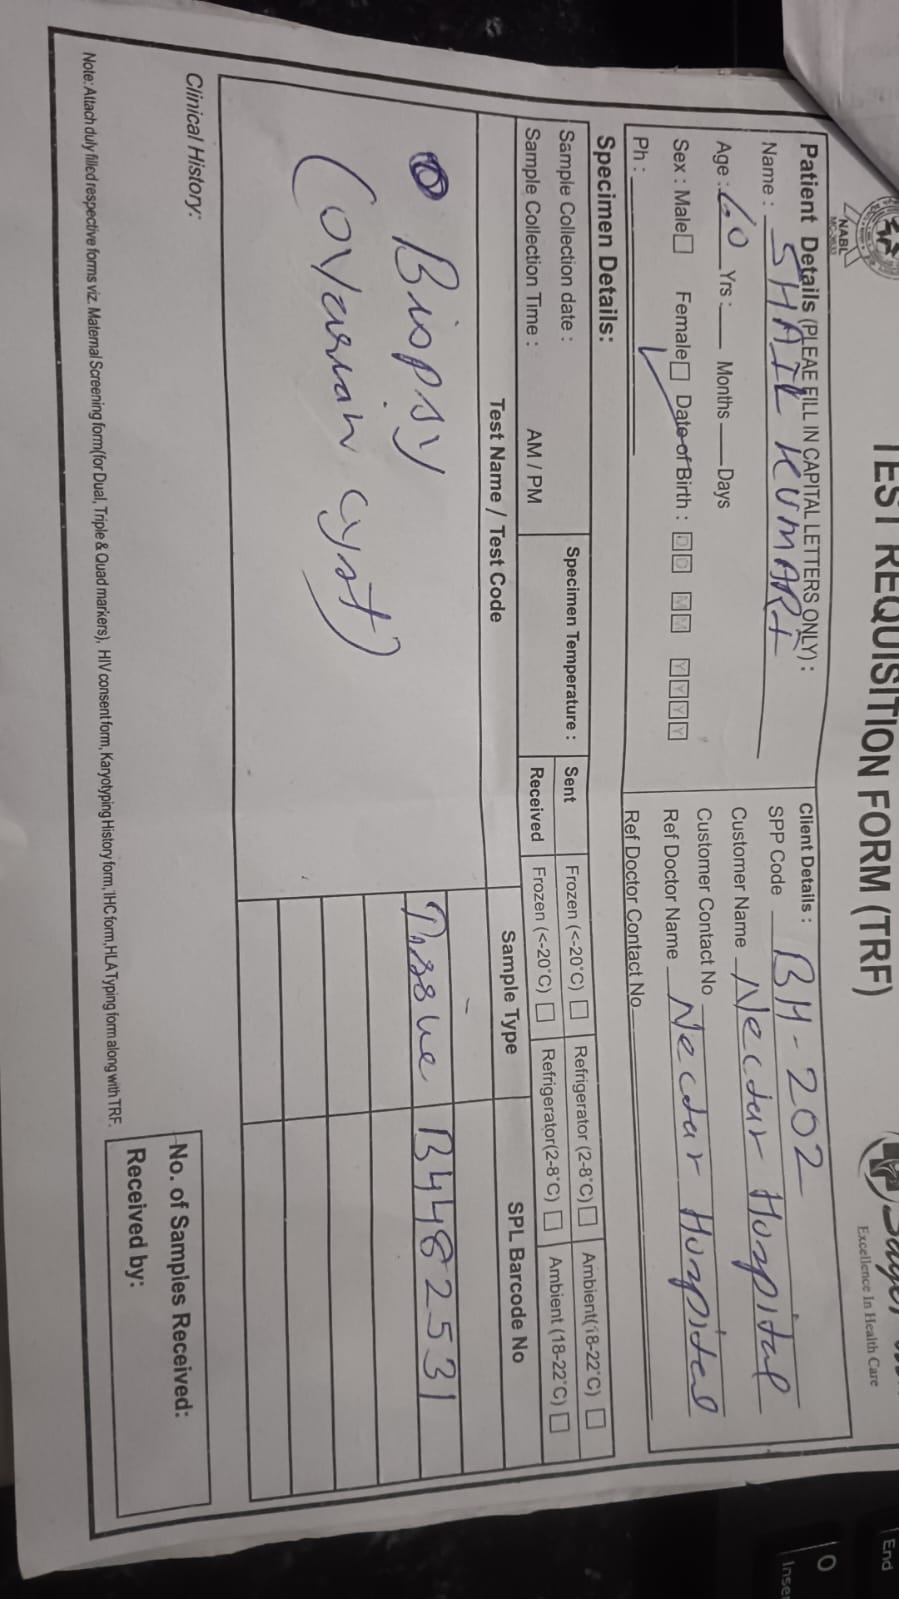 TEST REQUISITION FORM (TRF)
Excellence In Health Care
NABL
Patient Details (PLEAE FILL IN CAPITAL LETTERS ONLY) :
Name : SHAIL KUMARI
Age : 60 Yrs : Months Days
Sex : Male Female Date of Birth : D D M M Y Y Y Y
Ph :
Client Details :
SPP Code BH-202
Customer Name Nectar Hospital
Customer Contact No
Ref Doctor Name Nectar Hospital
Ref Doctor Contact No
Specimen Details:
Sample Collection date :
Sample Collection Time : AM / PM
Specimen Temperature :
Sent Frozen (<-20°C) Refrigerator (2-8°C) Ambient(18-22°C)
Received Frozen (<-20°C) Refrigerator(2-8°C) Ambient (18-22°C)
Test Name / Test Code Sample Type SPL Barcode No
Biopsy Tissue B4482531
(ovarian cyst)
Clinical History:
No. of Samples Received:
Received by:
Note: Attach duly filled respective forms viz. Maternal Screening form(for Dual, Triple & Quad markers), HIV consent form, Karyotyping History form, IHC form, HLA Typing form along with TRF.
End
0
Inse